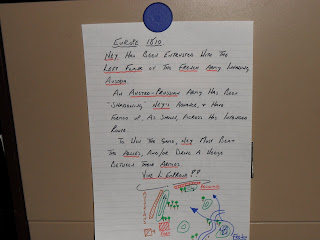 EUROPE 1810
NEY HAS BEEN ENTRUSTED WITH THE
LEFT FLANK OF THE FRENCH ARMY INVADING
AUSTRIA.
AN AUSTRO-PRUSSIAN ARMY HAS BEEN
"SHADOWING" NEY'S ADVANCE, & HAVE
FORMED UP, AS SHOWN, ACROSS HIS INTENDED
ROUTE
TO WIN THE GAME, NEY MUST BEAT
THE ALLIES, AND/OR DRIVE A WEDGE
BETWEEN THEIR ARMIES
VIVE L'